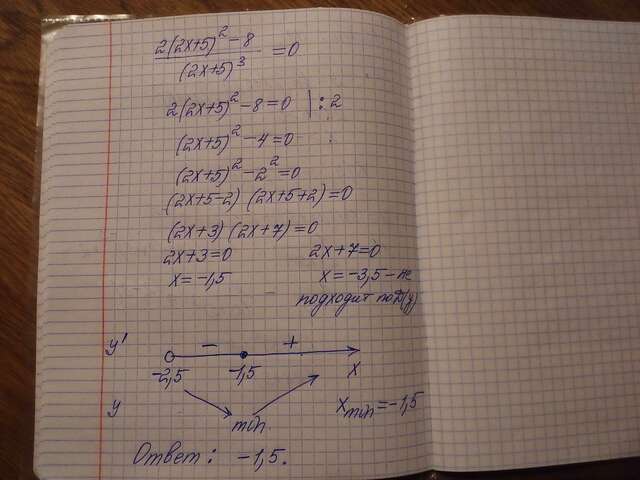 2(2x+5)² - 8 / (2x+5)³ = 0
2(2x+5)² - 8 = 0 | : 2
(2x+5)² - 4 = 0
(2x+5)² - 2² = 0
(2x+5-2) (2x+5+2) = 0
(2x+3) (2x+7) = 0
2x+3=0 2x+7=0
x = -1,5 x = -3,5 - не
подходит по D(y)
y' - +
-2,5 -1,5 x
y min x min = -1,5
Ответ: -1,5.